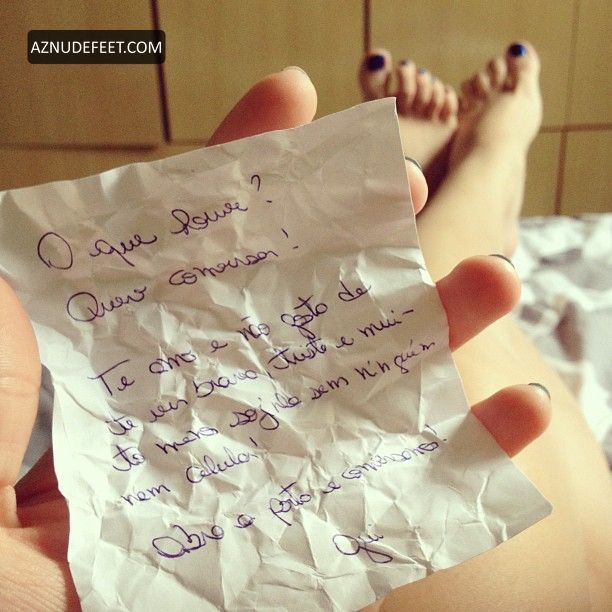 AZNUDEFEET.COM
O que houve?
Quero conversar!
Te amo e não gosto de
te ver brava, triste e mui-
to menos sozinha sem ninguém
nem celular!
Abre a porta e conversamos!
Gui